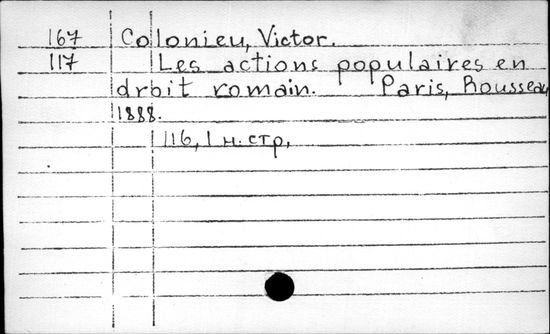 167 Colonieu, Victor.
117 Les actions populaires en
droit romain. Paris, Rousseau,
1888.
116, 1 н. стр.